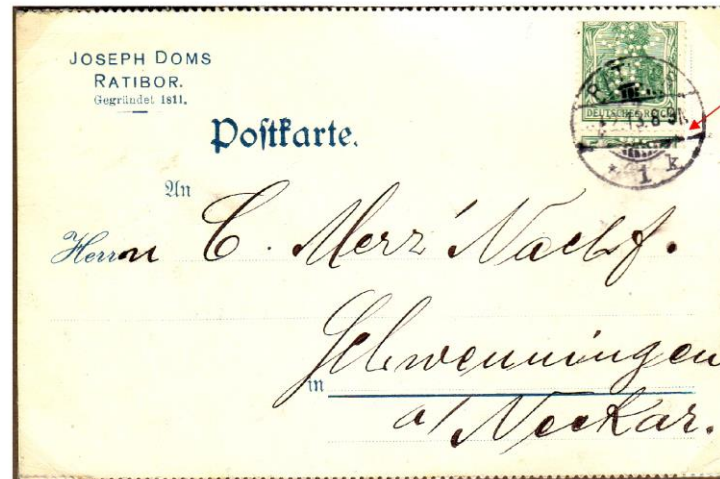 JOSEPH DOMS
RATIBOR.
Gegründet 1811.
DEUTSCHES REICH
Postkarte.
An
Herrn C. Merz' Nachf.
Schwenningen
in
a/ Neckar.